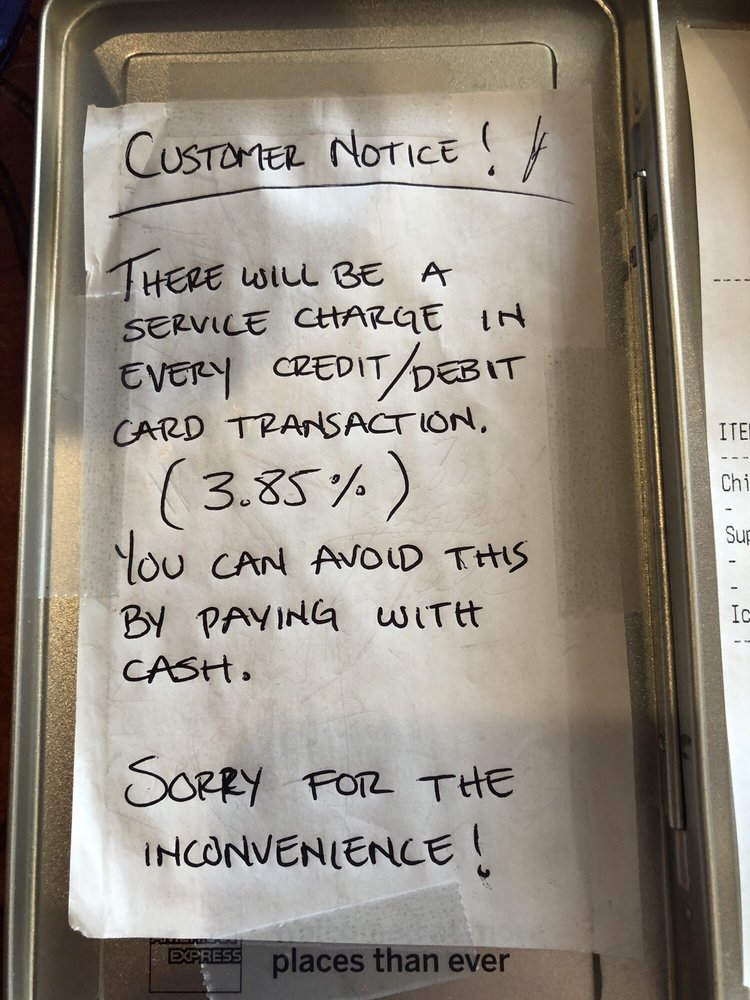 CUSTOMER NOTICE!
THERE WILL BE A
SERVICE CHARGE IN
EVERY CREDIT/DEBIT
CARD TRANSACTION.
(3.85%)
YOU CAN AVOID THIS
BY PAYING WITH
CASH.
SORRY FOR THE
INCONVENIENCE!
AMERICAN
EXPRESS
places than ever
ITE
---
Chi
-
Sup
-
-
Ic
--